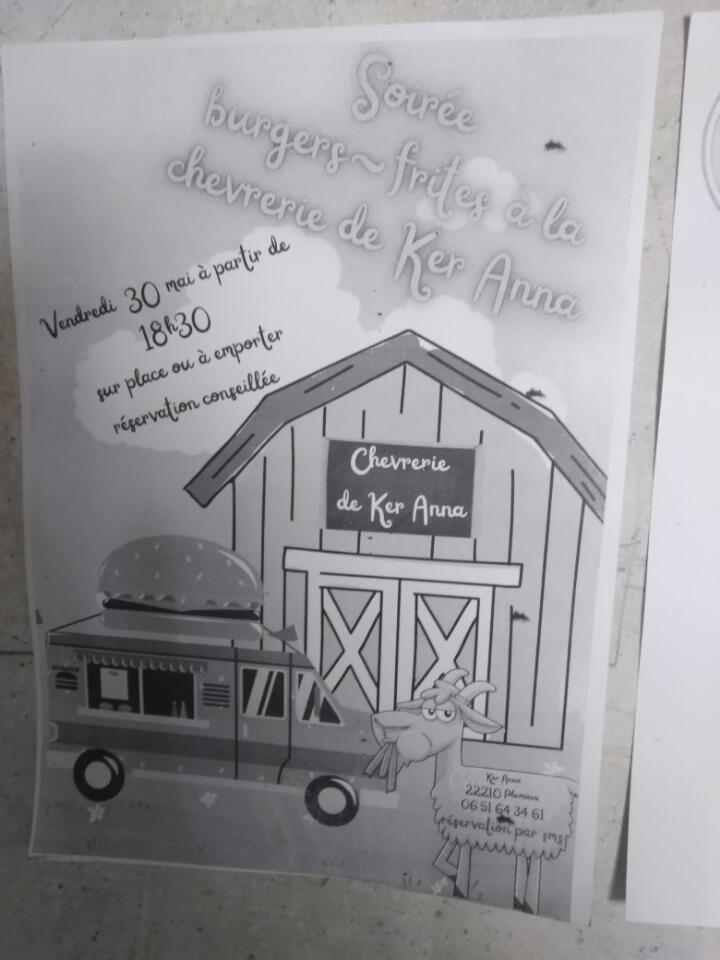 Soirée
burgers~frites à la
chevrerie de Ker Anna
Vendredi 30 mai à partir de
18h30
sur place ou à emporter
réservation conseillée
Chevrerie
de Ker Anna
BURGER
Ker Anna
22210 Plumieux
06 51 64 34 61
réservation par sms